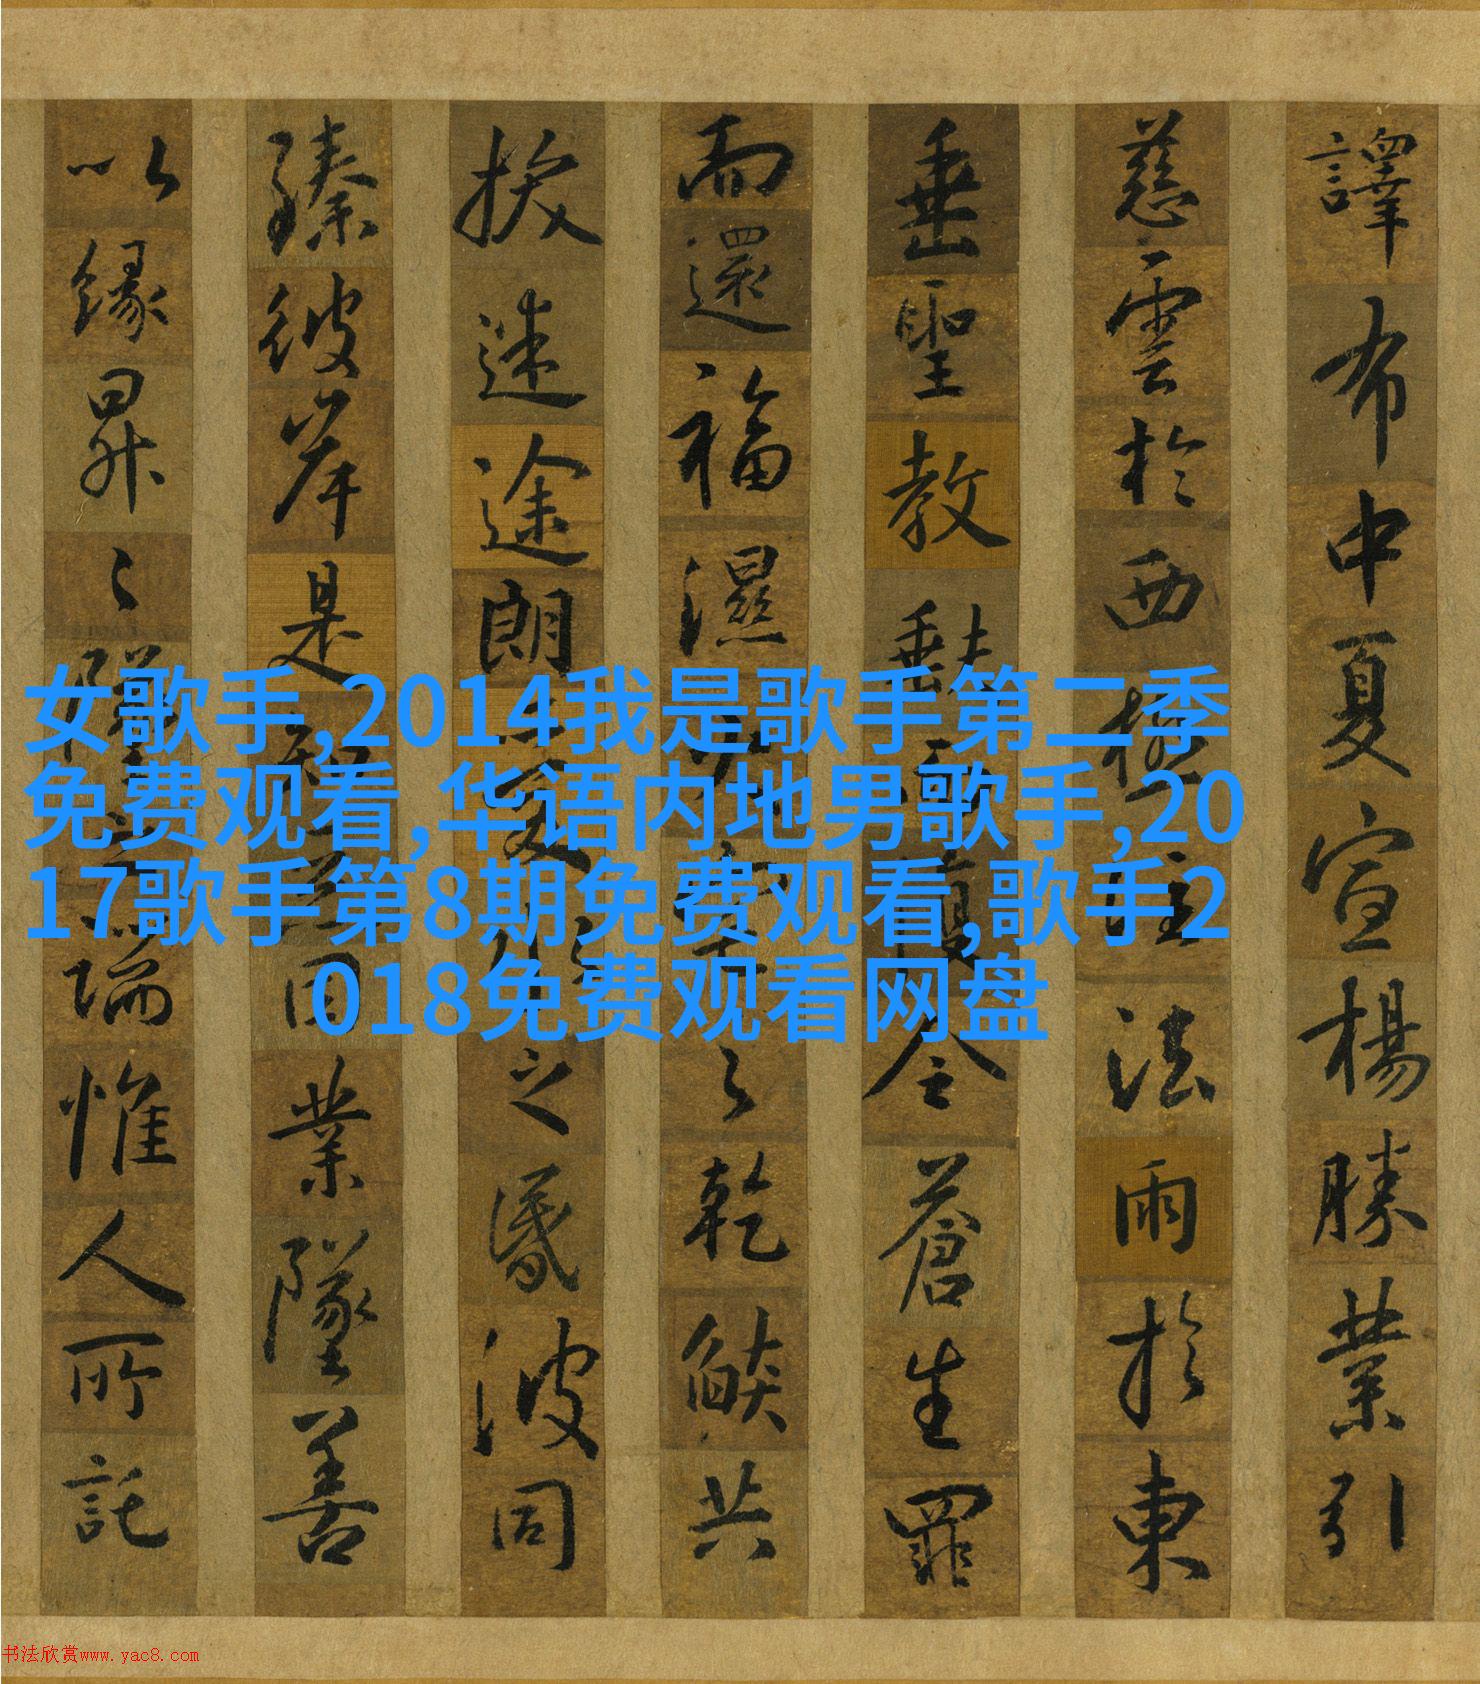 譯布中夏宣楊勝業引
慈雲於西極注法雨於東
垂聖教缺而復全蒼生罪
而還福濕火宅之乾燄共
拔迷途朗愛水之昏波同
臻彼岸是知惡因業墜善
以緣昇〻墜之端惟人所託
女歌手,2014我是歌手第二季
免费观看,华语内地男歌手,20
17歌手第8期免费观看,歌手2
018免费观看网盘
书法欣赏www.yac8.com